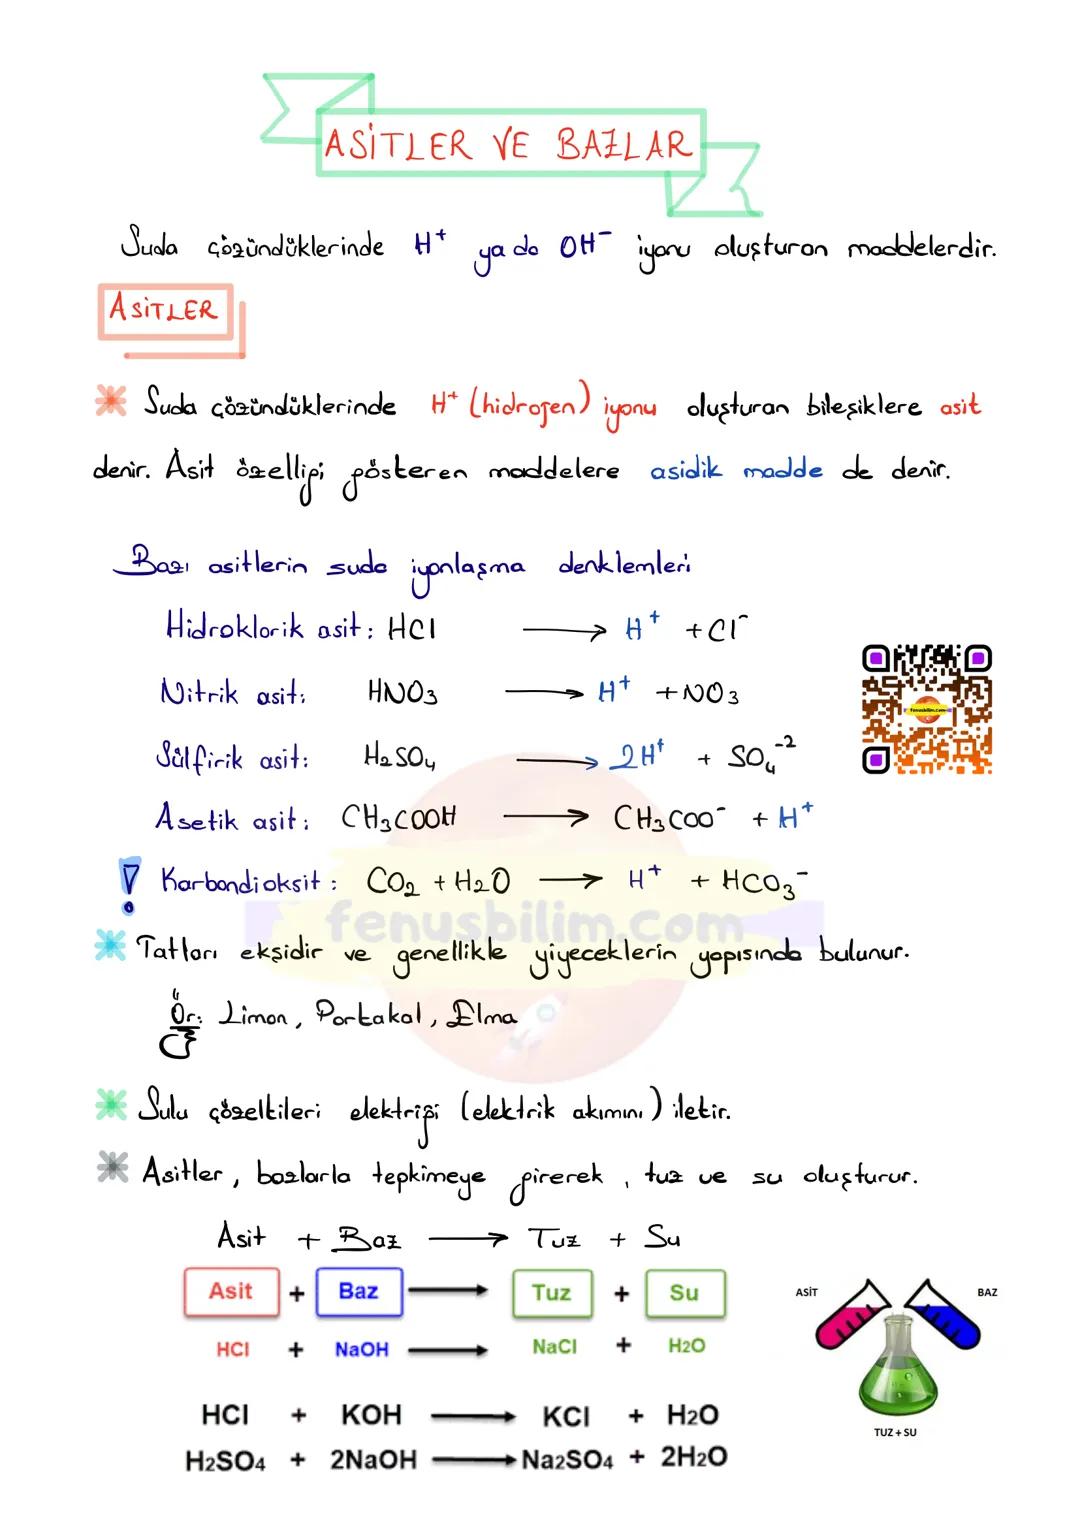 ASİTLER VE BAZLAR
Suda çözündüklerinde H⁺ ya da OH⁻ iyonu oluşturan maddelerdir.
ASİTLER
Suda çözündüklerinde H⁺ (hidrojen) iyonu oluşturan bileşiklere asit
denir. Asit özelliği gösteren maddelere asidik madde de denir.
Bazı asitlerin suda iyonlaşma denklemleri
Hidroklorik asit: HCl → H⁺ + Cl⁻
Nitrik asit: HNO₃ → H⁺ + NO₃
Sülfirik asit: H₂SO₄ → 2H⁺ + SO₄⁻²
Asetik asit: CH₃COOH → CH₃COO⁻ + H⁺
! Karbondioksit: CO₂ + H₂O → H⁺ + HCO₃⁻
fenusbilim.com
Tatları ekşidir ve genellikle yiyeceklerin yapısında bulunur.
Ör: Limon, Portakal, Elma
Sulu çözeltileri elektriği (elektrik akımını) iletir.
Asitler, bazlarla tepkimeye girerek, tuz ve su oluşturur.
Asit + Baz → Tuz + Su
Asit + Baz → Tuz + Su
HCl + NaOH → NaCl + H2O
HCl + KOH → KCl + H2O
H2SO4 + 2NaOH → Na2SO4 + 2H2O
ASİT
BAZ
TUZ + SU
fenusbilim.com